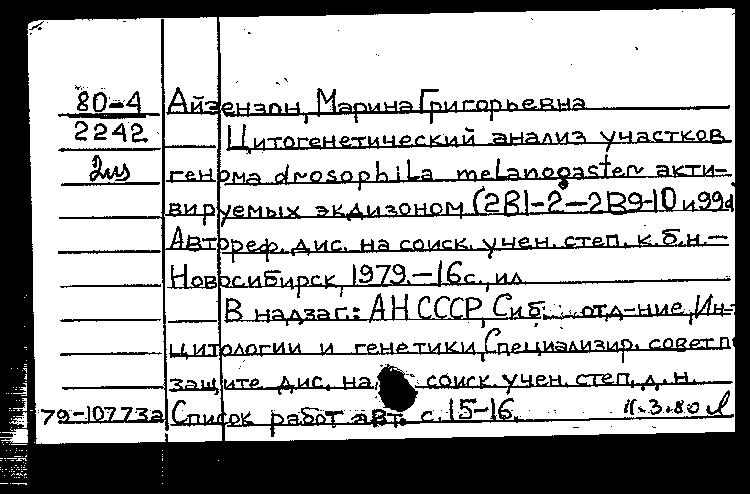 80-4 Айзензон, Марина Григорьевна
2242 Цитогенетический анализ участков
2из генома drosophila melanogaster акти-
вируемых экдизоном (2В1-2-2В9-10 и 99d
Автореф. дис. на соиск. учен. степ. к.б.н.-
Новосибирск, 1979.-16с., ил
В надзаг.: АН СССР, Сиб. отд-ние, Ин-т
цитологии и генетики, Специализир. совет п
защите дис. на соиск. учен. степ. д.н.
79-10773а Список работ авт. с. 15-16. 11.3.80